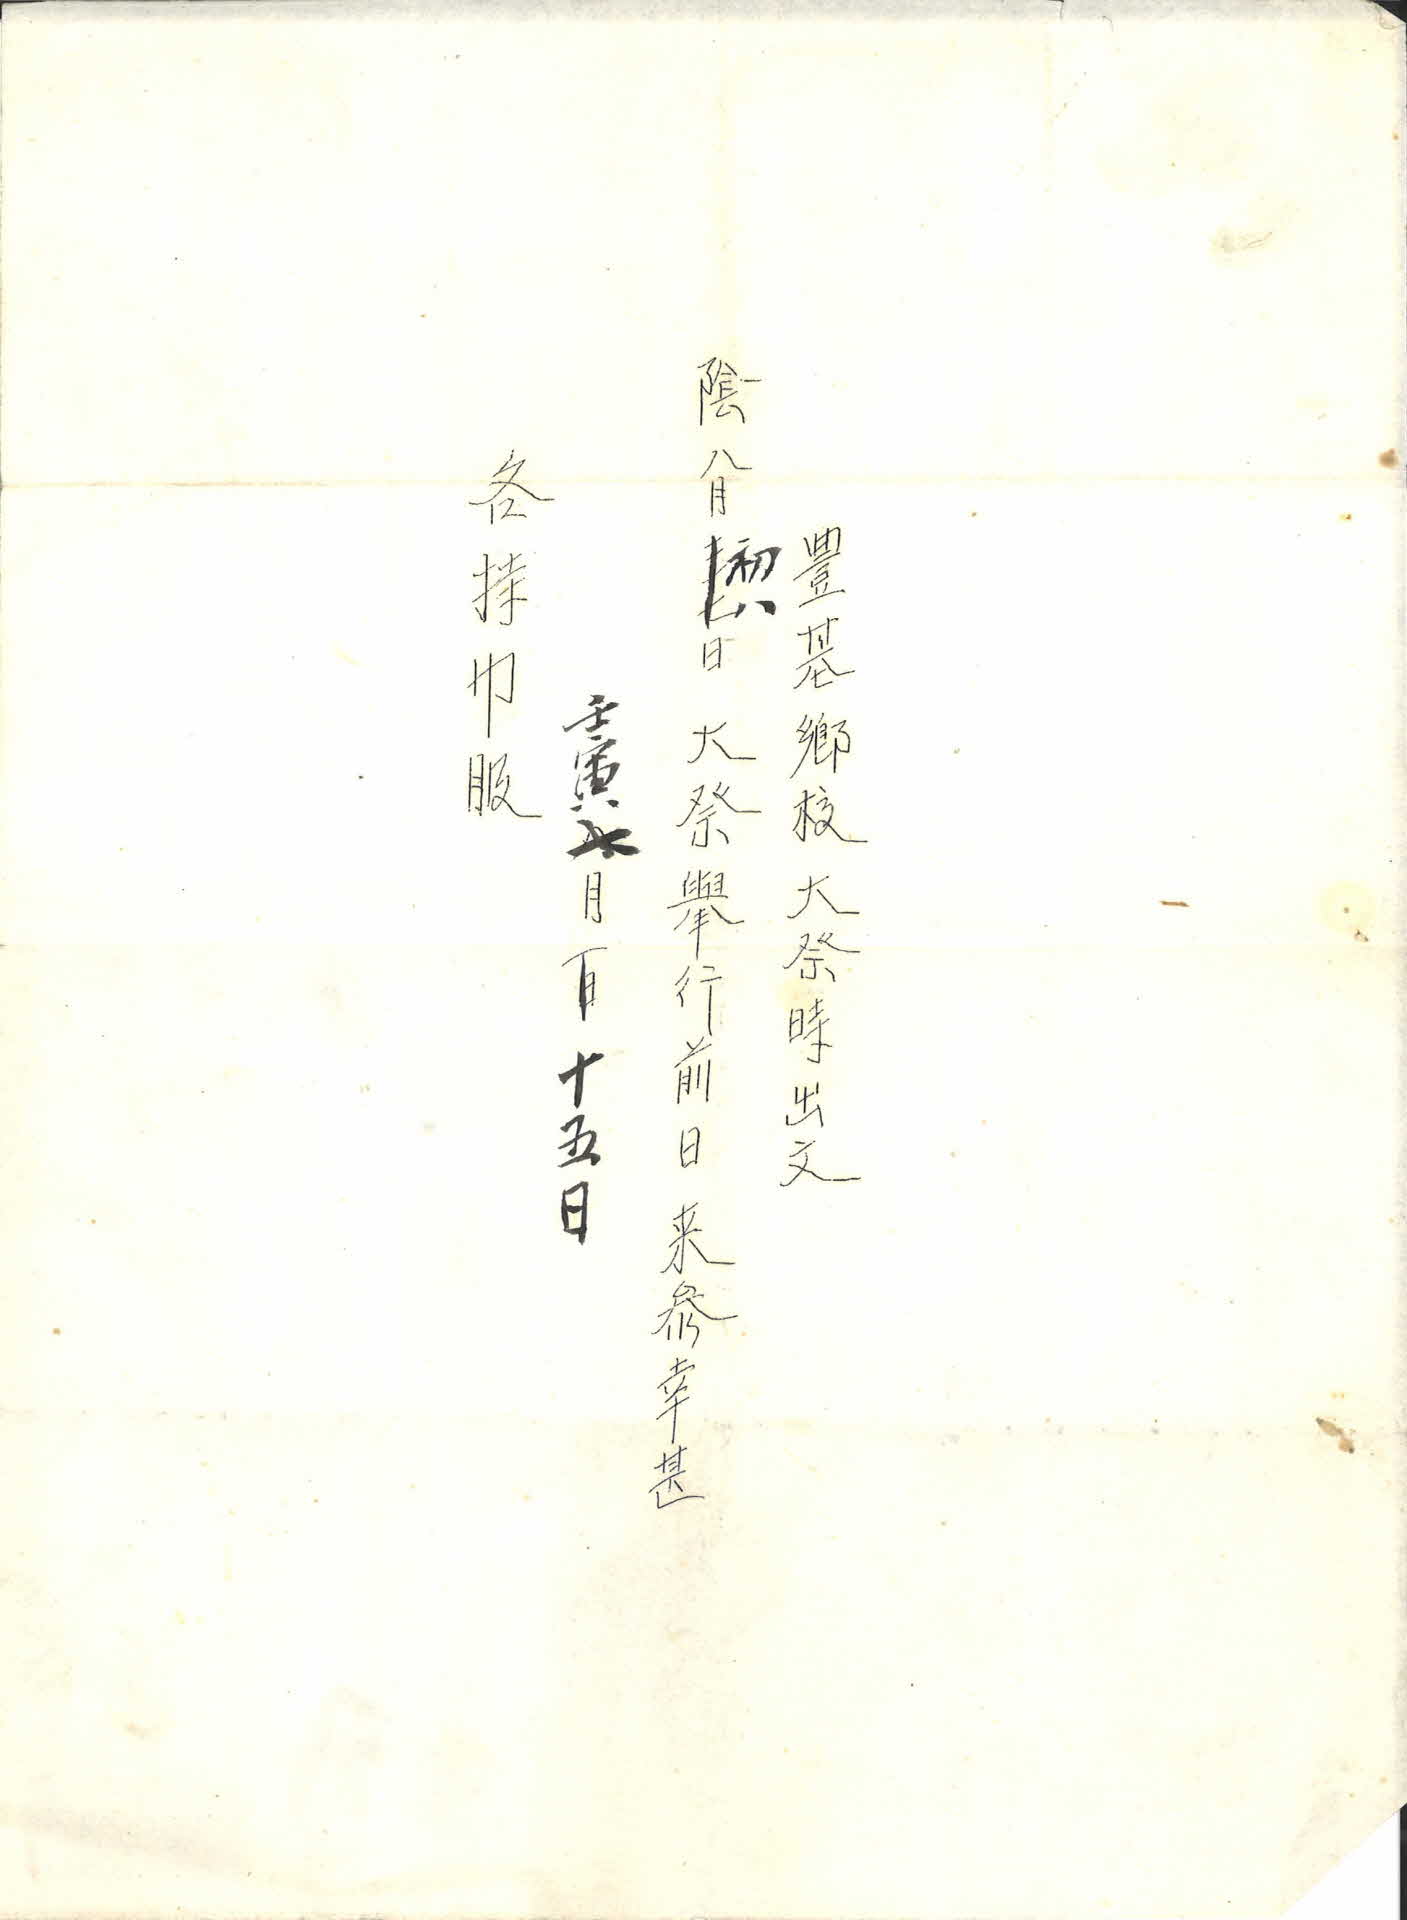 豊基鄕校大祭時出文
陰八月初六日大祭擧行前日来參幸甚
壬寅七月百十五日
各持巾服